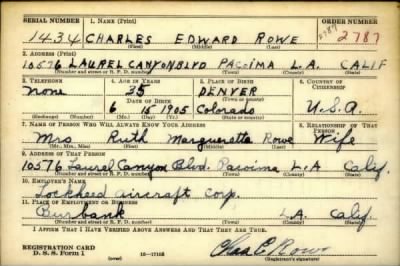 SERIAL NUMBER 1. NAME (Print) ORDER NUMBER
1434 CHARLES EDWARD ROWE 2787 2787
(First) (Middle) (Last)
2. ADDRESS (Print)
10576 LAUREL CANYON BLVD PACOIMA L.A. CALIF
(Number and street or R. F. D. number) (Town) (County) (State)
3. TELEPHONE 4. AGE IN YEARS 5. PLACE OF BIRTH 6. COUNTRY OF CITIZENSHIP
None 35 DENVER
DATE OF BIRTH (Town or county)
6 15 1905 Colorado U.S.A.
(Exchange) (Number) (Mo.) (Day) (Yr.) (State or country)
7. NAME OF PERSON WHO WILL ALWAYS KNOW YOUR ADDRESS 8. RELATIONSHIP OF THAT PERSON
Mrs Ruth Marguerette Rowe Wife
(Mr., Mrs., Miss) (First) (Middle) (Last)
9. ADDRESS OF THAT PERSON
10576 Laurel Canyon Blvd. Pacoima L.A Calif.
(Number and street or R. F. D. number) (Town) (County) (State)
10. EMPLOYER'S NAME
Lockheed aircraft Corp.
11. PLACE OF EMPLOYMENT OR BUSINESS
Burbank L.A. Calif.
(Number and street or R. F. D. number) (Town) (County) (State)
I AFFIRM THAT I HAVE VERIFIED ABOVE ANSWERS AND THAT THEY ARE TRUE.
REGISTRATION CARD
D. S. S. Form 1 16—17105 Chas E. Rowe
(Registrant's signature)